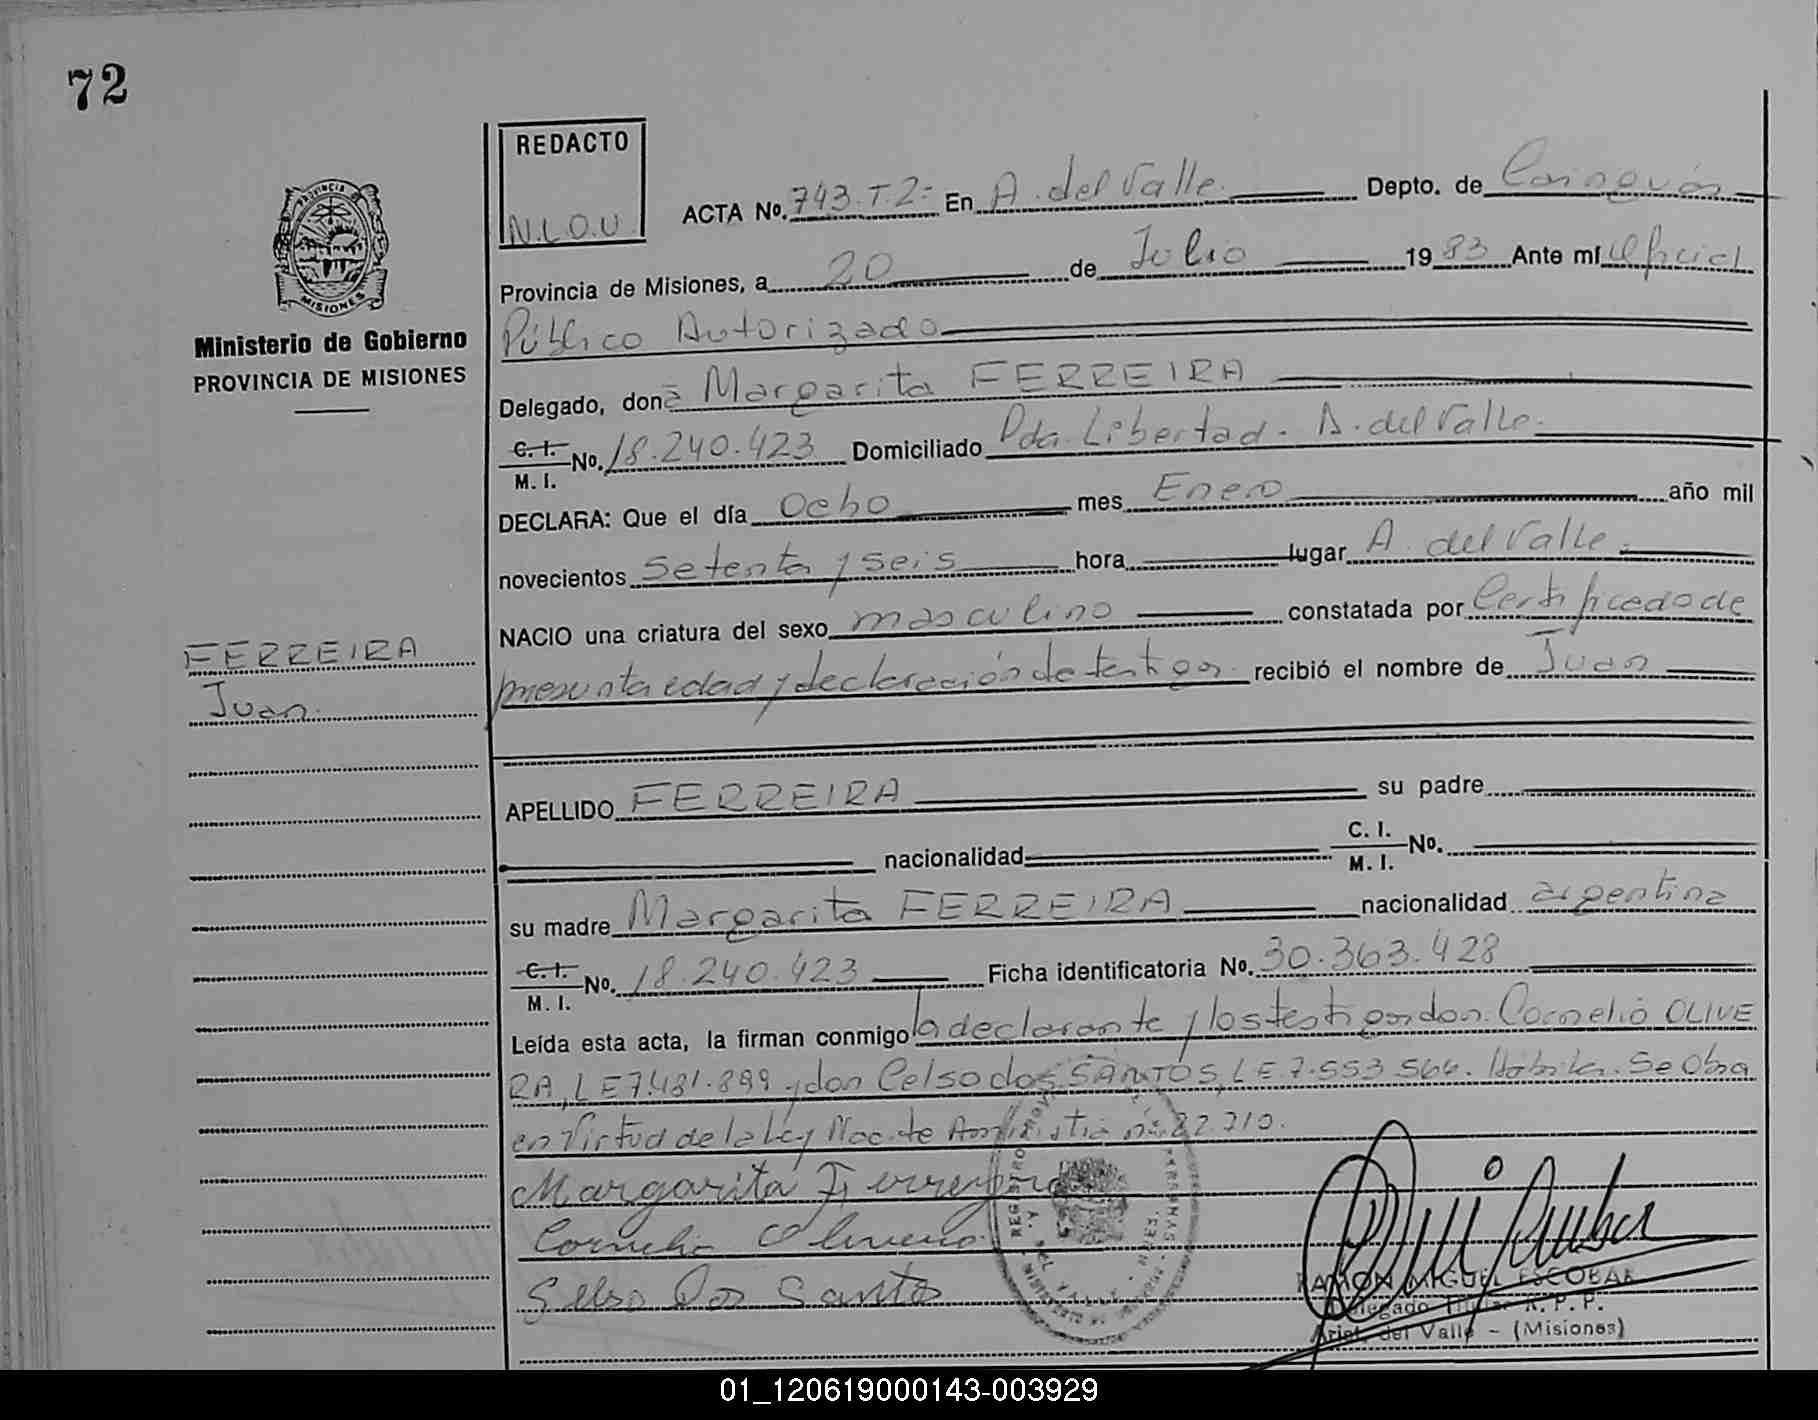 72
REDACTO
N.L.O.U.
ACTA No. 743.T.2- En A. del Valle Depto. de Cainguás
Provincia de Misiones, a 20 de Julio 1983 Ante mí Oficial
Público Autorizado
PROVINCIA
MISIONES
Ministerio de Gobierno
PROVINCIA DE MISIONES
Delegado, doña Margarita FERREIRA
C. I. M. I. No. 18.240.423 Domiciliado Pda. Libertad - A. del Valle.
DECLARA: Que el día Ocho mes Enero año mil
novecientos setenta y seis hora lugar A. del Valle.
NACIO una criatura del sexo masculino constatada por Certificado de
presunta edad y declaración de testigos recibió el nombre de Juan
FERREIRA
Juan.
APELLIDO FERREIRA su padre
nacionalidad C. I. M. I. No.
su madre Margarita FERREIRA nacionalidad argentina
C. I. M. I. No. 18.240.423 Ficha identificatoria No. 30.363.428
Leída esta acta, la firman conmigo la declarante y los testigos don Cornelio OLIVE
RA, LE 7.481.899 y don Celso dos SANTOS, LE.7.553.566. Se Obra
en Virtud de la Ley Nac. de Amnistia nº 22.710.
Margarita Ferreyra
Cornelio Olivera
Selso Dos Santos
RAMON MIGUEL ESCOBAR
Delegado Titular R. P. P.
Arist. del Valle - (Misiones)
01_120619000143-003929